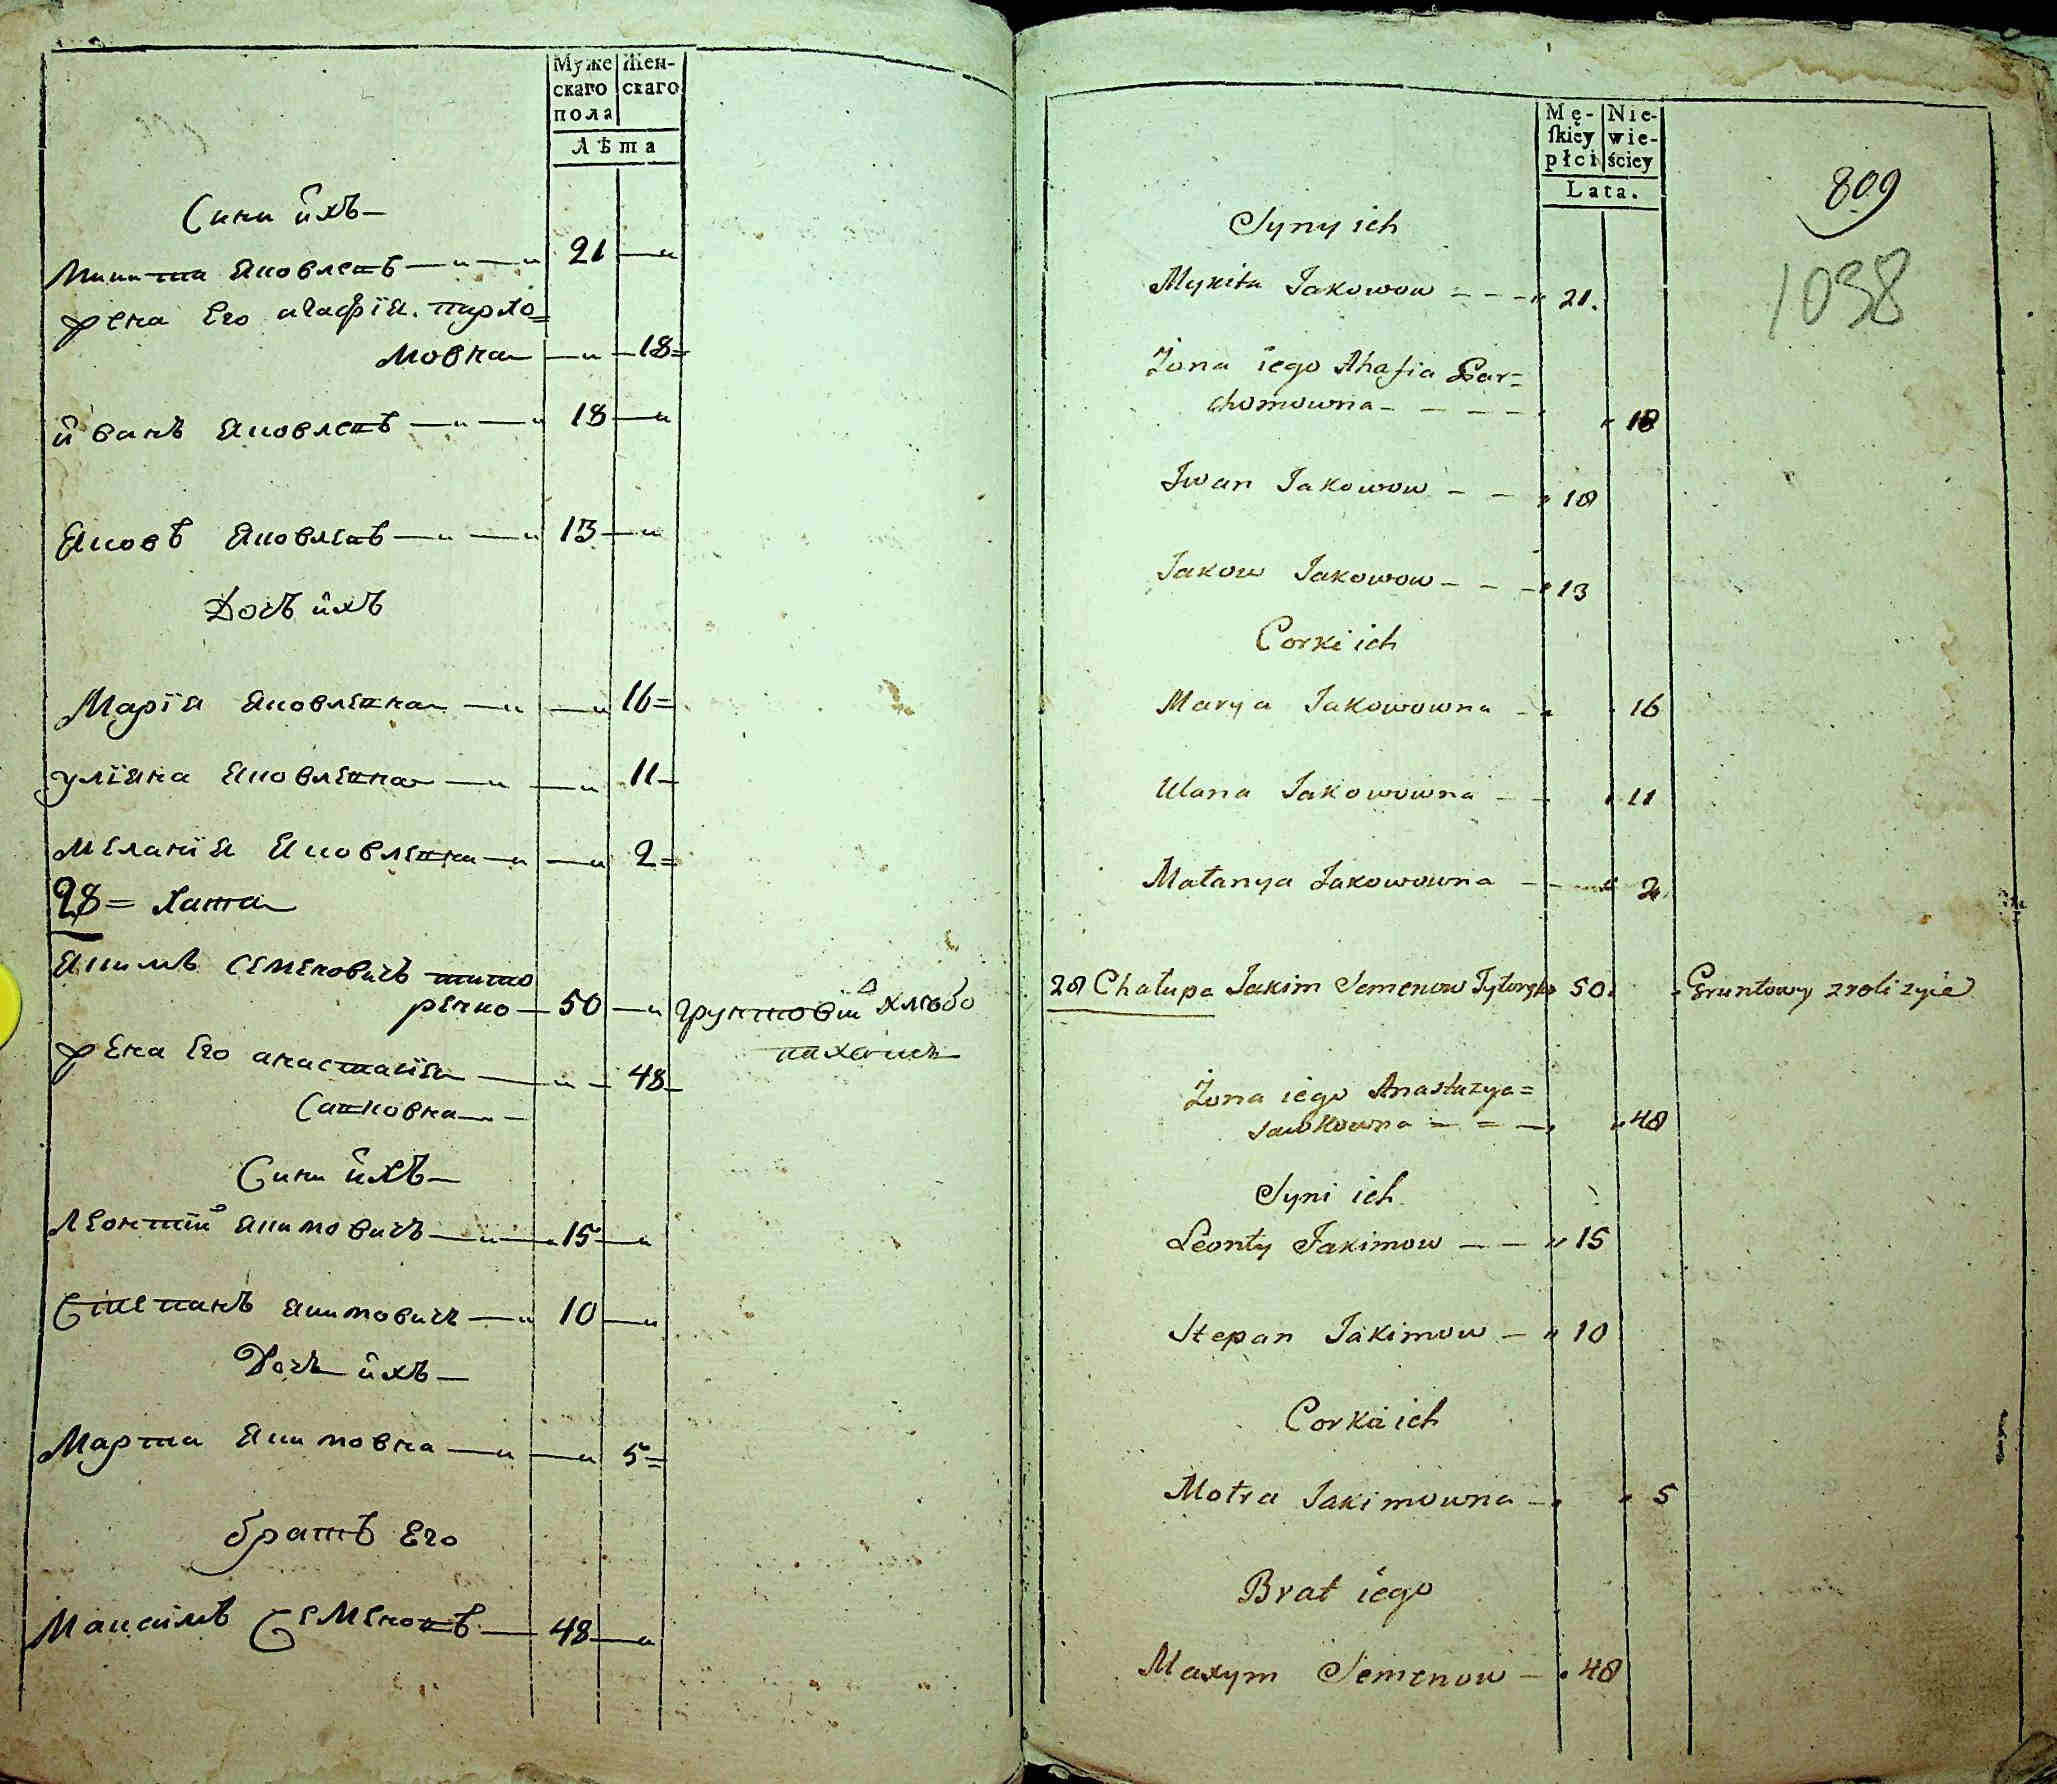 Муже
скаго
пола
Жен-
скаго
Лѣта
Сини ихъ —
Микита Яковлевъ — 21 —
жена Его агафїя. пархо=
мовна — 18=
иванъ Яковлевъ — 18 —
Яковъ Яковлевъ — 13 —
Дочъ ихъ
Марїя Яковлевна — 16=
улїяна Яковлевна — 11 —
Меланїя Яковлевна — 2=
28= Хата
Якимъ Семеновичъ тито
ренко — 50 — грунтовій хлѣбо
пахець
жена Его анастасїя — 48
Савковна —
Сини ихъ —
Леонтій Якимовичъ — 15 —
Степанъ Якимовичъ — 10 —
Дочь ихъ —
Мартa Якимовна — 5=
братъ Его
Максимъ Семеновъ — 48 —
Mę-
ſkiéy
płci
Nie-
wie-
ściey
Lata.
809
1038
Syny ich
Mykita Jakowow - - - 21.
Żona iego Ahafia Par=
chomowna - - - - 18
Iwan Jakowow - - 18
Jakow Jakowow - - - 13
Corki ich
Marya Jakowowna - 16
Ulana Jakowowna - - 11
Małanya Jakowowna - - 2
28 Chałupa Jakim Semenow Tytorenko 50. Gruntowy z roli życie
Żona iego Anastazya=
Sawkowna = = - 48
Syni ich
Leonty Jakimow - - 15
Stepan Jakimow - 10
Corka ich
Motra Jakimowna - 5
Brat iego
Maxym Semenow - 48